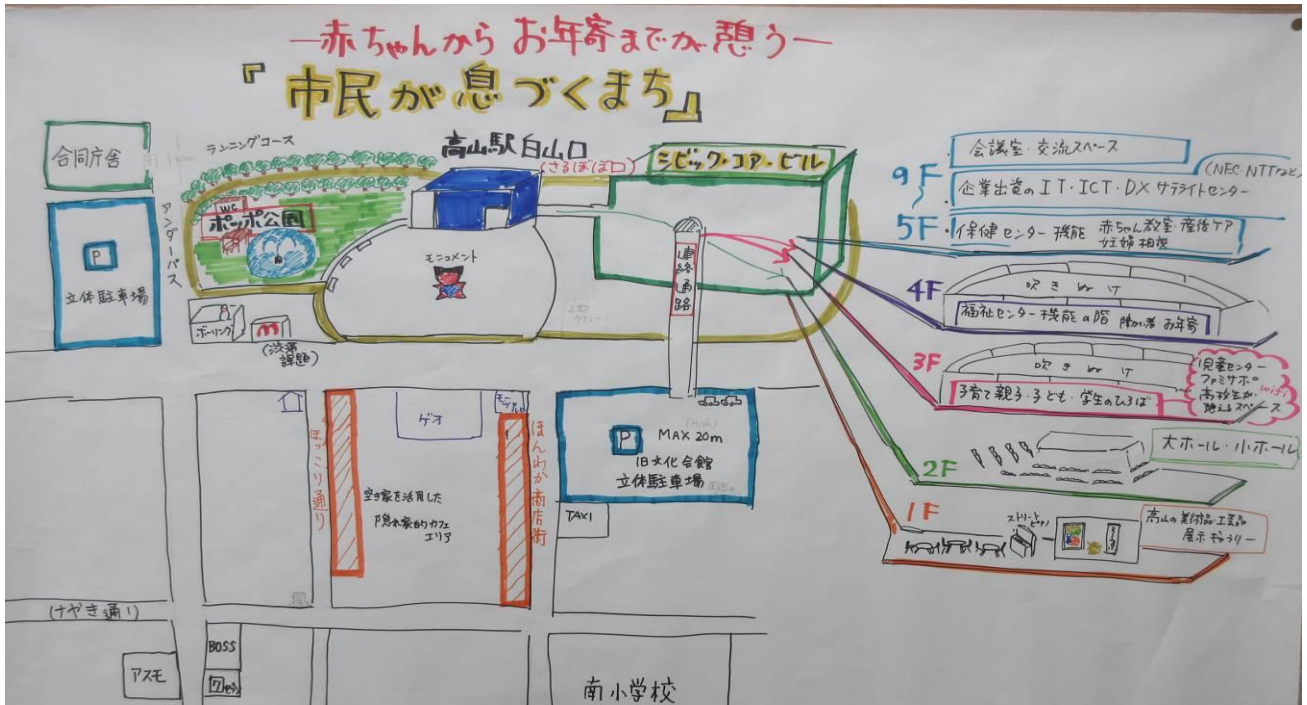 ―赤ちゃんから お年寄までが 憩う―
『市民が息づくまち』
合同庁舎
ランニングコース
高山駅 白山口
(さるぼぼ口)
シビック・コア・ビル
WC
ポッポ公園
アンダーパス
P
立体駐車場
モニュメント
連絡通路
ボーリング
(渋滞
課題)
ほっこり通り
ゲオ
空き家を活用した
隠れ家的カフェ
エリア
ほんわか商店街
P
MAX 20m
旧文化会館
立体駐車場
TAXI
(けやき通り)
アスモ
BOSS
南小学校
9F
会議室・交流スペース
企業出資のIT・ICT・DX サテライトセンター
(NEC・NTTなど)
5F
・保健センター機能 赤ちゃん教室・産後ケア
妊婦相談
4F
吹きぬけ
福祉センター機能の階 障がい者 お年寄
3F
吹きぬけ
子育て親子・子ども・学生のひろば
児童センター
ファミサポ
高校生が
wifi
スペース
2F
大ホール・小ホール
1F
ストリート
ピアノ
高山の美術品・工芸品
展示ギャラリー